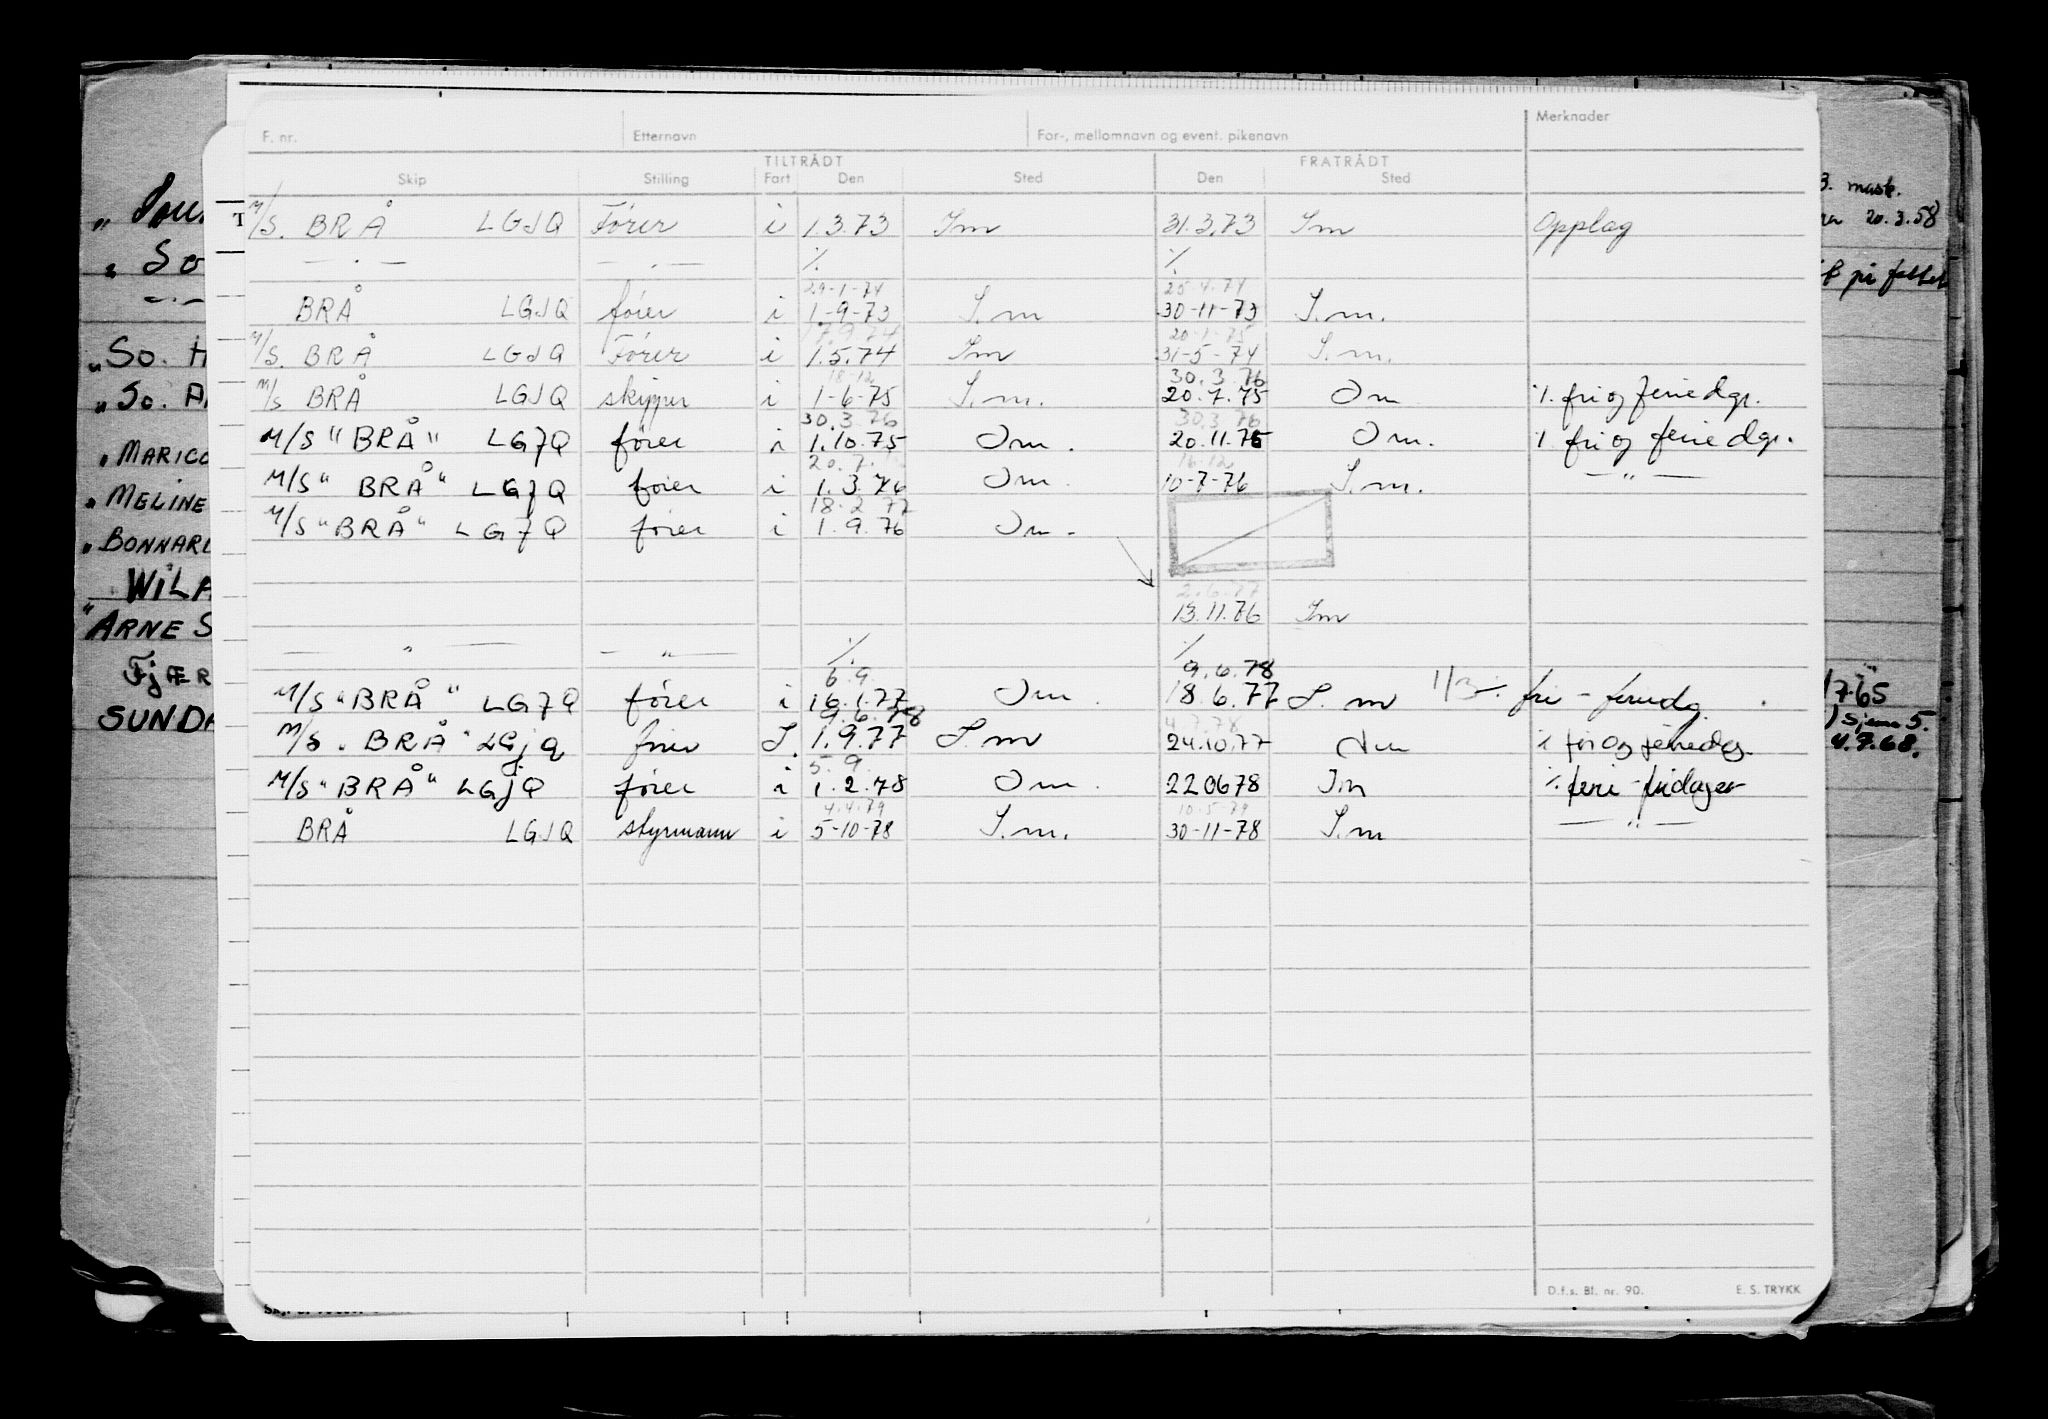 F. nr. Etternavn For-, mellomnavn og event. pikenavn Merknader
TILTRÅDT FRATRÅDT
Skip Stilling Fart Den Sted Den Sted
M/S. BRÅ LGJQ Fører i 1.3.73 Im 31.3.73 Im Opplag
— · — — · — ·/. ·/.
29-1-74 25.4.74
BRÅ LGJQ fører i 1-9-73 I.m 30-11-73 I.m.
17.9.74 20-1-75
M/S. BRÅ LGJQ Fører i 1.5.74 Im 31-5-74 I.m.
18-12 30.3.76
M/S BRÅ LGJQ skipper i 1-6-75 I.m. 20.7.75 Im ·/. fri og feriedgr.
30.3.76 30.3.76
M/S "BRÅ" LGJQ fører i 1.10.75 Im. 20.11.75 Im. ·/. fri og feriedgr.
20.7. 16.12
M/S "BRÅ" LGJQ fører i 1.3.76 Im. 10-7-76 I.m. — " —
18.2.77
M/S "BRÅ" LGJQ fører i 1.9.76 Im.
2.6.77
13.11.76 Im
— " — — " — ·/. ·/.
6.9. 9.6.78
M/S "BRÅ" LGJQ fører i 16.1.77 Im. 18.6.77 I.m fri - feriedg.
9.6.78 4.7.78
M/S. BRÅ" LGJQ fører I. 1.9.77 I.m 24.10.77 Im ·/. fri og feriedgr.
5.9.
M/S "BRÅ" LGJQ fører i 1.2.78 Im. 220678 Im ·/. ferie-fridager
4.4.79 10.5.79
BRÅ LGJQ styrmann i 5-10-78 I.m. 30-11-78 I.m — " —
D.f.s. Bl. nr. 90. E. S. TRYKK
" So
" So. H
" So. A
" MARICO
" MELINE
" BONNARD
WILA
" ARNE S
FJÆR
SUNDA
B. mask.
20.3.58
på feltet
1765
) sjøm 5.
4.9.68.